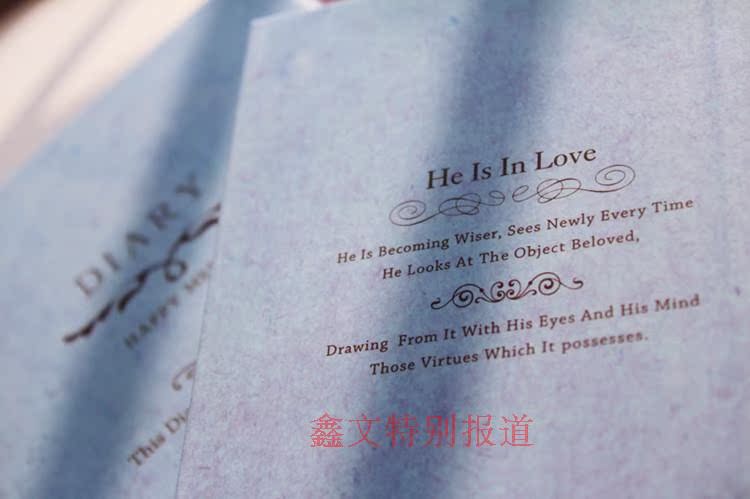 He Is In Love
He Is Becoming Wiser, Sees Newly Every Time
He Looks At The Object Beloved,
Drawing From It With His Eyes And His Mind
Those Virtues Which It possesses.
DIARY
HAPPY
This
鑫文特别报道